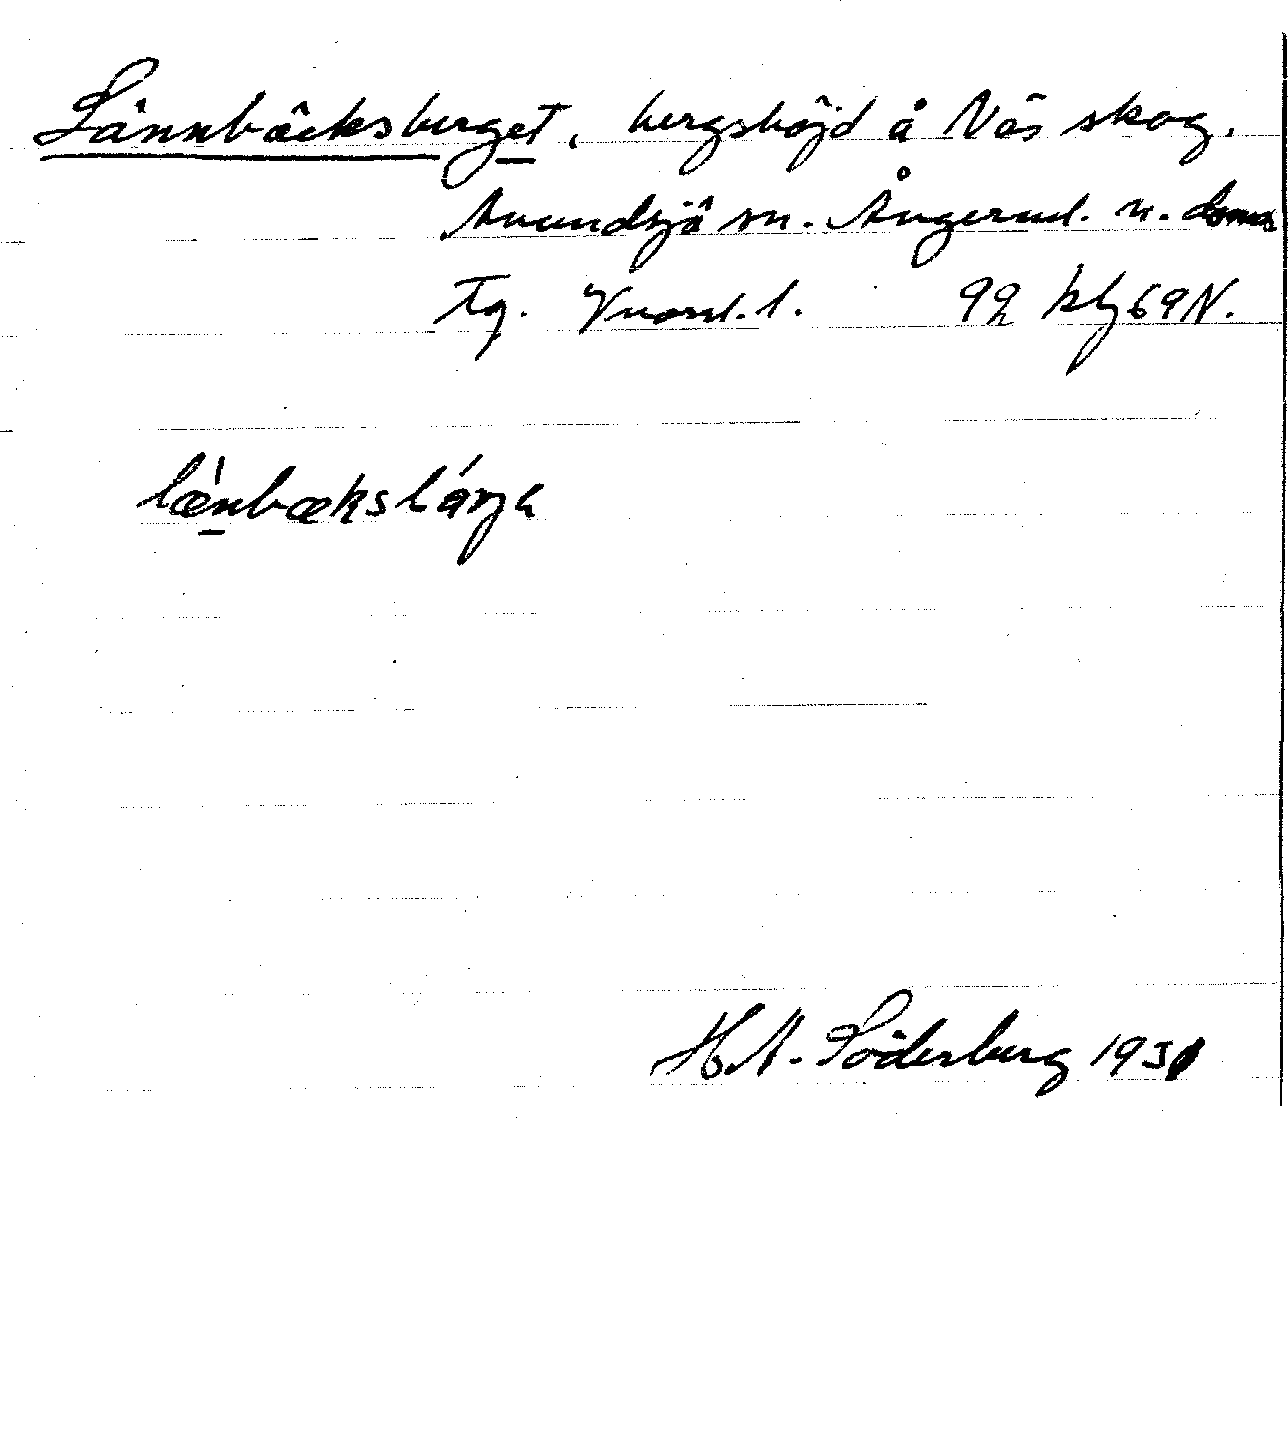 Lännbäcksberget, bergshöjd å Näs skog,
Anundsjö sn. Ångerml. n. doms
Tg. Vnorrl. l. 92 blz 69 N.
læ̀nbæksbárja
H.A. Söderberg 1931